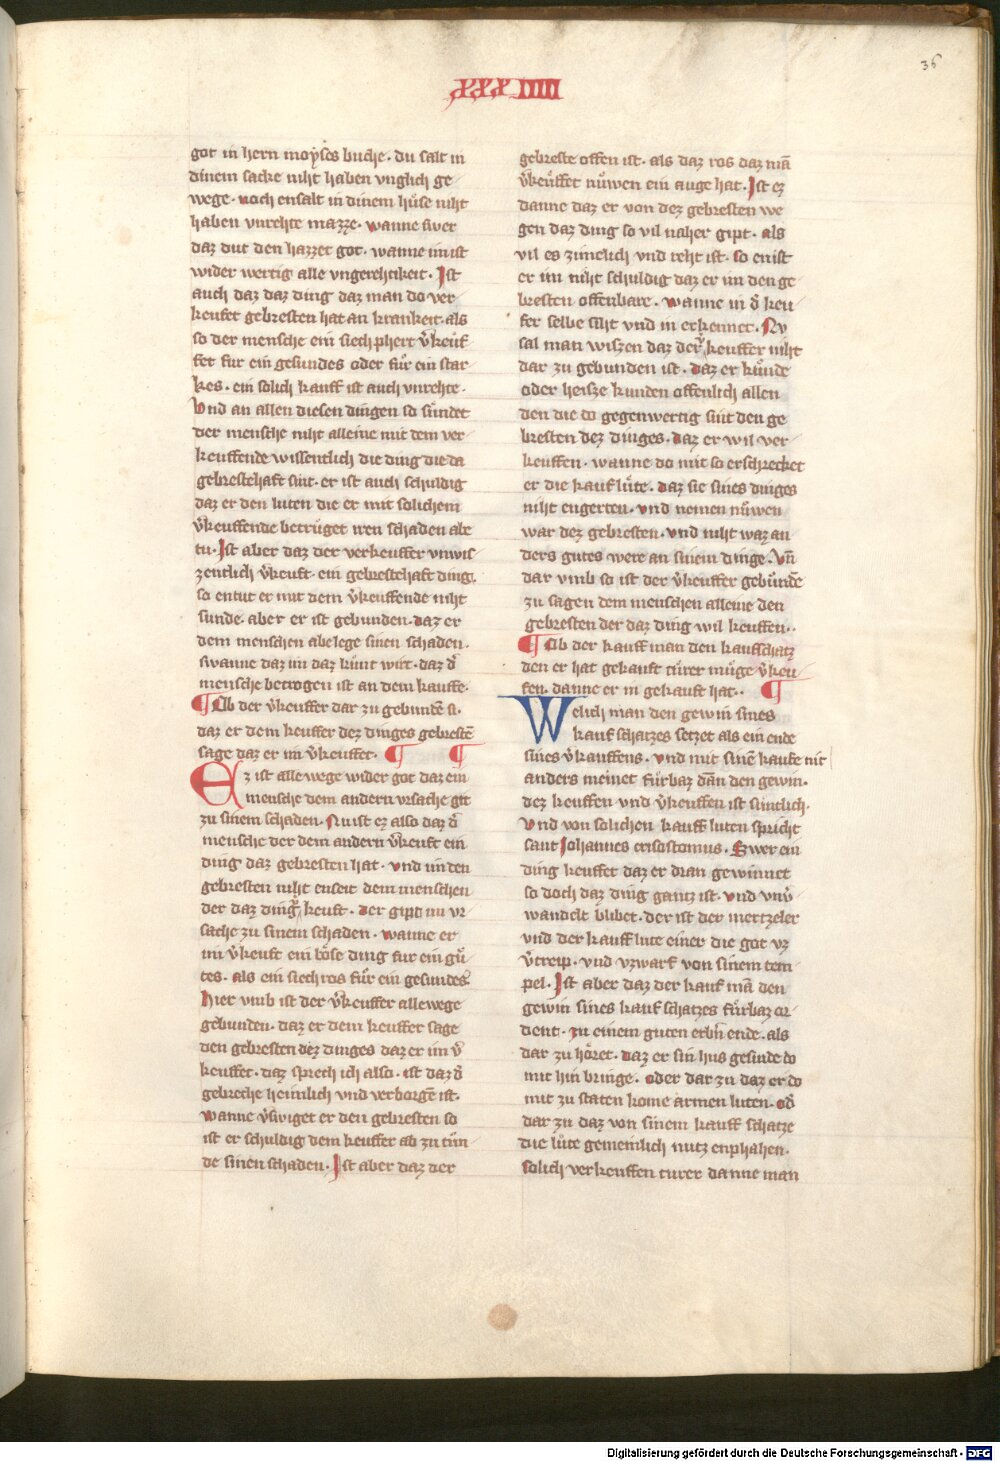 36
xxxiiii
got in hern moyses buche · du salt in
dinem sacke niht haben vnglich ge
wege · noch ensalt in dinem huse niht
haben vnrehte mazze · wanne swer
daz dut den hazzet got · wanne im ist
wider wertig alle vngerehtikeit · Ist
auch daz daz ding daz man do ver
keufet gebresten hat an krankeit · als
so der mensche ein siech phert v̾keuf
fet fur ein gesundes oder fuͤr ein star
kes · ein solich kauff ist auch vnrehte ·
Vnd an allen diesen dingen so suͤndet
der mensche niht alleine mit dem ver
keuffende wissentlich die ding die da
gebresthaft sint · er ist auch schuldig
daz er den luten die er mit solichem
v̾keuffende betruget iren schaden abe
tu · Ist aber daz der verkeuffer vnwis
zentlich v̾keuft · ein gebresthaft ding ·
so entut er mit dem v̾keuffende niht
sunde · aber er ist gebunden · daz er
dem menschen abelege sinen schaden ·
swanne daz im daz kunt wirt · daz d̾
mensche betrogen ist an dem kauffe ·
¶ Ob der v̾keuffer dar zu gebundē si ·
daz er dem keuffer dez dinges gebrestē
sage daz er im v̾keuffet · ¶ ¶
Ez ist alle wege wider got daz ein
mensche dem andern vrsache git
zu sinem schaden · Nu ist ez also daz d̾
mensche der dem andern v̾keuft ein
ding daz gebresten hat · vnd im den
gebresten niht enseit dem menschen
der daz ding keuft · der gipt im vr
sache zu sinem schaden · wanne er
im v̾keuft ein boͤse ding fur ein guͤ
tes · als ein siech ros fuͤr ein gesundes
hier vmb ist der v̾keuffer allewege
gebunden · daz er dem keuffer sage
den gebresten dez dinges daz er im v̾
keuffet · daz sprech ich also · ist daz d̾
gebreche heimlich vnd verborgē ist ·
wanne v̾swiget er den gebresten so
ist er schuldig dem keuffer ab zu tun
de sinen schaden · Ist aber daz der
gebreste offen ist · als daz ros daz mā
v̾keuͤffet nuͤwen ein auge hat · Ist ez
danne daz er von dez gebresten we
gen daz ding so vil naher gipt · als
vil es zimelich vnd reht ist · so en ist
er im niht schuldig daz er im den ge
bresten offenbare · wanne in d̾ keu
fer selbe siht vnd in erkennet · Nv
sal man wiszen daz der keuffer niht
dar zu gebunden ist · daz er kuͤnde
oder heisze kunden offenlich allen
den die do gegenwertig sint den ge
bresten dez dinges · daz er wil ver
keuffen · wanne do mit so erschrecket
er die kaufluͤte · daz sie sines dinges
niht engerten · vnd nemen nuͤwen
war dez gebresten · vnd niht waz an
ders gutes were an sinem dinge · Vn̄
dar vmb so ist der v̾keuffer gebundē
zu sagen dem menschen alleine den
gebresten der daz ding wil keuffen ··
¶ Ob der kauff man den kauffschatz
den er hat gekauft tuͤrer muͤge v̾keu
fen · danne er in gekauft hat ·· ¶
Welich man den gewin sines
kauf schatzes setzet als ein ende
sines v̾kauffens · vnd mit sinē kaufe nit
anders meinet fuͤrbaz dān den gewin ·
dez keuffen vnd v̾keuffen ist suntlich ·
Vnd von solichen kauff luten spricht
sant Johannes crisostomus · Swer ein
ding keuffet daz er dran gewinnet
so doch daz ding gantz ist · vnd vnv̾
wandelt blibet · der ist der mertzeler
vnd der kauff lute einer die got vz
v̾treip · vnd vzwarf von sinem tem
pel · Ist aber daz der kauf mā den
gewin sines kauf schatzes fuͤrbaz or
dent · zu einem guten erbn̄ ende · als
dar zu hoͤret · daz er sin hus gesinde do
mit hin bringe · oder dar zu daz er do
mit zu staten kome armen luten · od̾
dar zu daz von sinem kauff schatze
die luͤte gemeinlich nutz enphahen ·
solich verkeuffen turer danne man
Digitalisierung gefördert durch die Deutsche Forschungsgemeinschaft - DFG